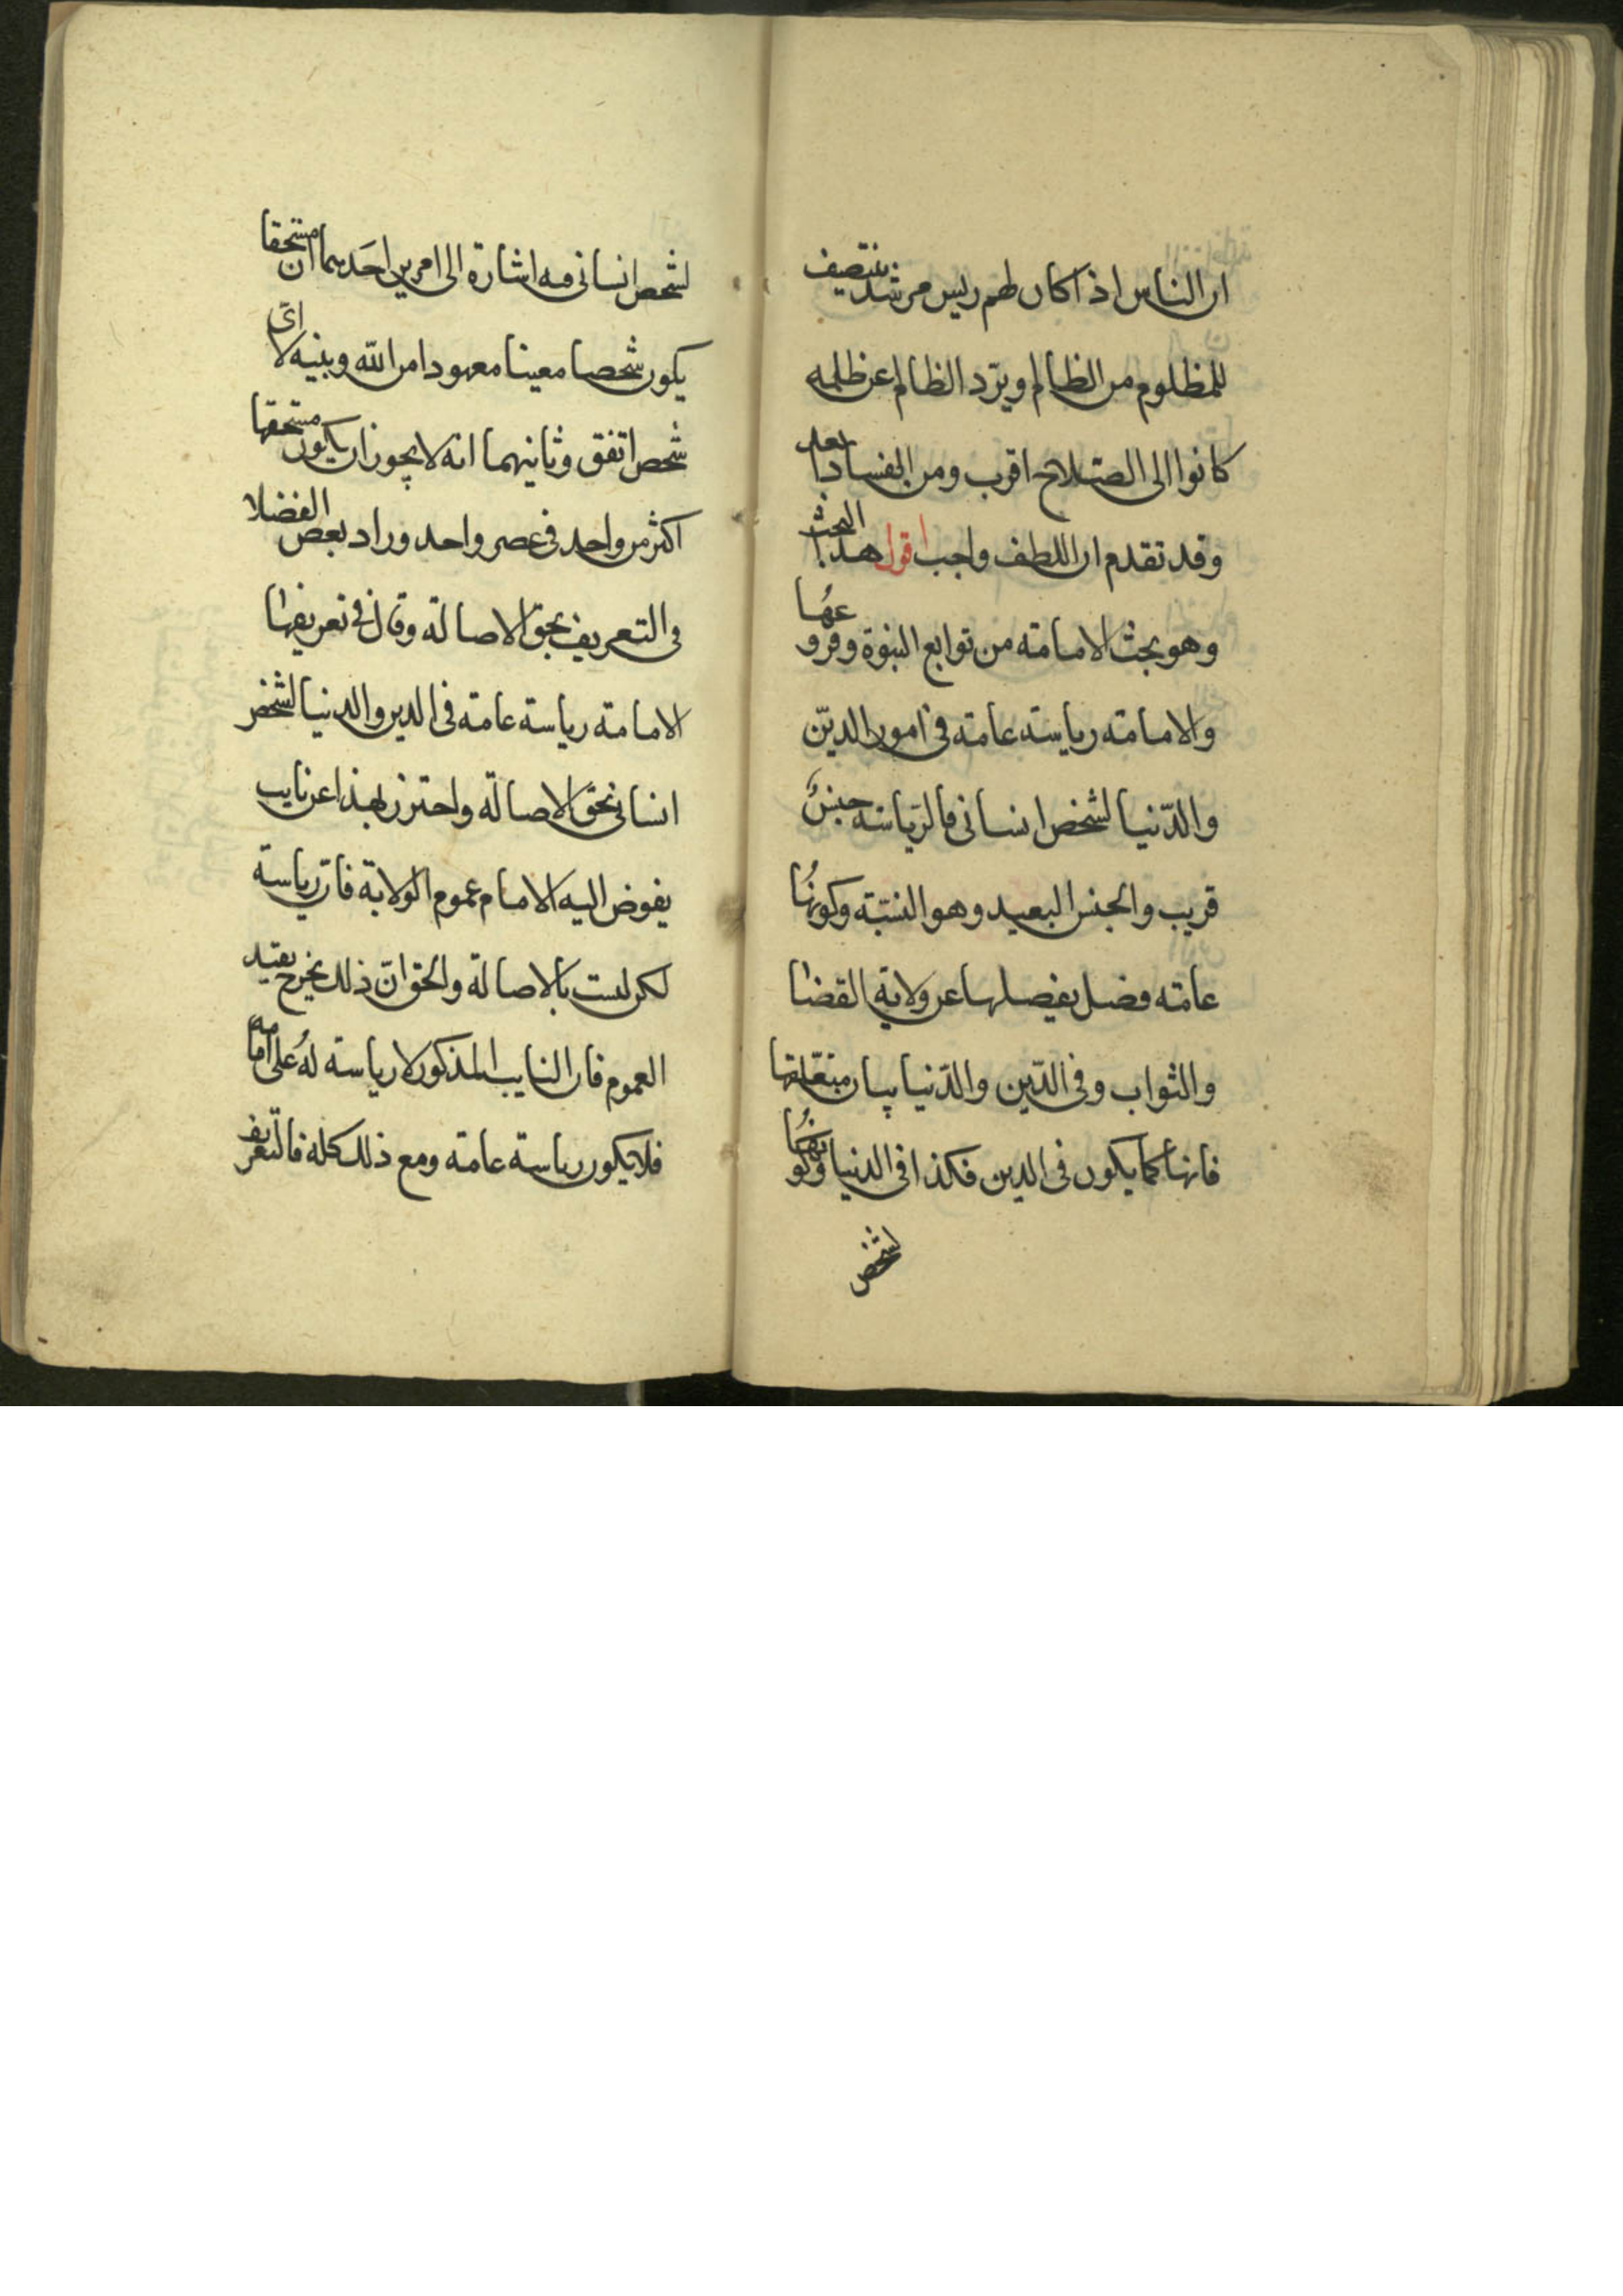 ان الناس اذا كان لهم ريس مرشد ينتصف
للمظلوم من الظالم ويرّد الظالم عن ظلمه
كانوا الى الصلاح اقرب ومن الفساد ابعد
وقد تقدم ان اللطف واجب اقول هذا البحث
وهو بحث الامامة من توابع النبوة وفروعها
والامامة رياسة عامة في امور الديّن
والدّنيا لشخص انساني فالرّياسة جنس
قريب والجنس البعيد وهو النسبة وكونها
عامة فصل يفصلها عن ولاية القضا
والثواب وفي الدّين والدّنيا بيان متعلقها
فانها كما يكون في الدين فكذا في الدنيا وكونها
لشخص
لشخص انساني فيه اشارة الى امرين احدهما ان مستحقها
يكون شخصا معينا معهودا من الله ونبيه لا اى
شخص اتفق وثانيهما انه لا يجوز ان يكون مستحقها
اكثر من واحد في عصر واحد وزاد بعض الفضلا
في التعريف بحق الاصالة وقال في تعريفها
الامامة رياسة عامة في الدين والدنيا لشخص
انساني بحق الاصالة واحترز بهذا عن نايب
يفوض اليه الامام عموم الولاية فان رياسة
لكن ليست بالاصالة والحق انّ ذلك يخرج بقيد
العموم فان النايب المذكور لا رياسة له على امامه
فلا يكون رياسة عامة ومع ذلك كله فالتعريف